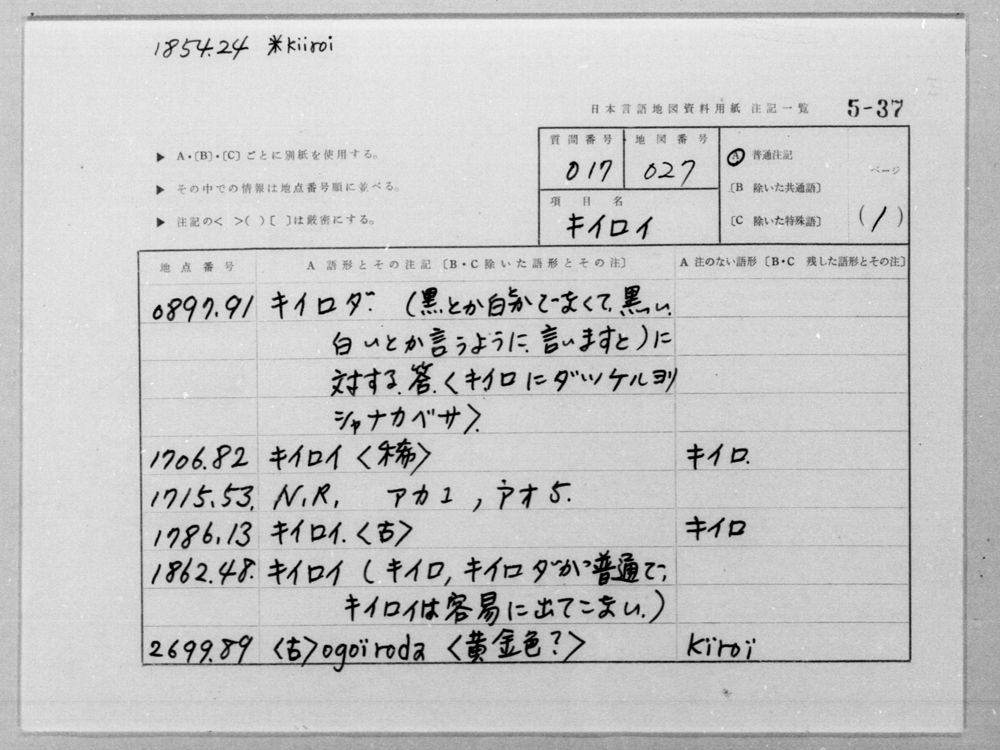 1854.24 ※kiiroi
日本言語地図資料用紙 注記一覧 5-37
▶ A・〔B〕・〔C〕ごとに別紙を使用する。
▶ その中での情報は地点番号順に並べる。
▶ 注記の< >( )〔 〕は厳密にする。
質問番号 地図番号
017 027
項目名
キイロイ
A 普通注記
〔B 除いた共通語〕
〔C 除いた特殊語〕
ページ
(1)
地点番号 A 語形とその注記〔B・C除いた語形とその注〕 A 注のない語形〔B・C 残した語形とその注〕
0897.91 キイロダ. (黒とか白かでなくて、黒い、
白いとか言うように、言いますと)に
対する答.<キイロにダッケルヨリ
シャナカベサ>.
1706.82 キイロイ<稀> キイロ.
1715.53. N.R. アカ1, アオ5.
1786.13 キイロイ.<古> キイロ
1862.48. キイロイ(キイロ,キイロダが普通で,
キイロイは容易に出てこない.)
2699.89 <古>ogoïroda <黄金色?> kïroï